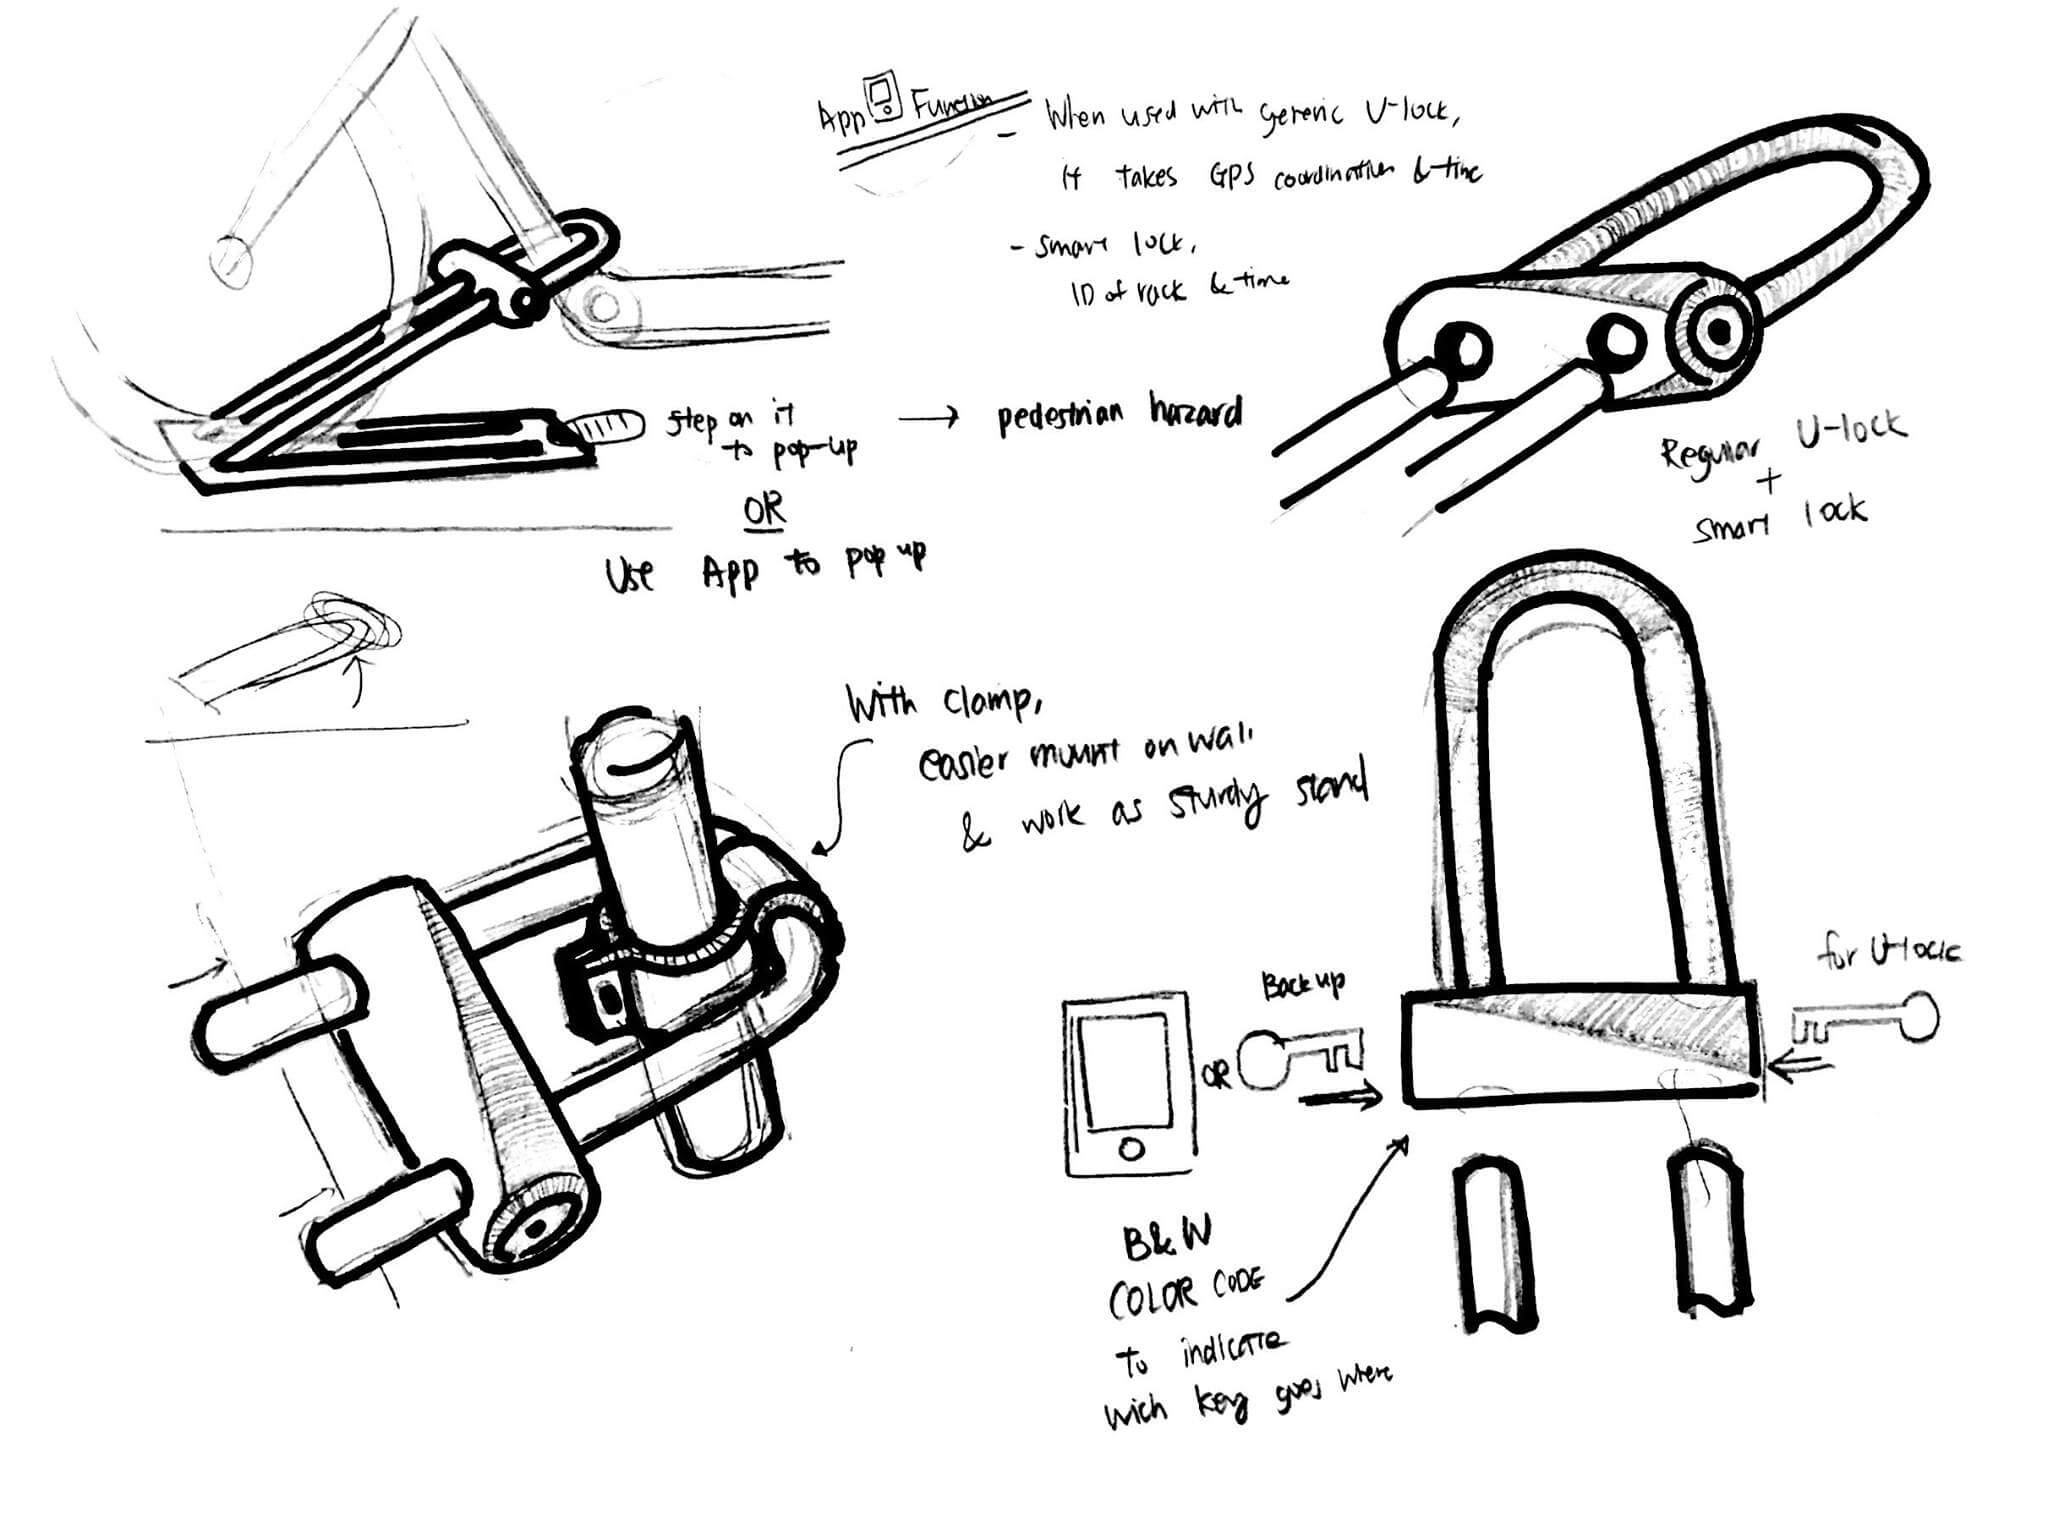 App Function
- When used with generic U-lock,
it takes GPS coordination & time
- smart lock,
ID of rack & time
Step on it
to pop-up
→ pedestrian hazard
OR
Use App to pop up
Regular U-lock
+
smart lock
With clamp,
easier mount on wall
& work as sturdy stand
Back up
OR
for U-lock
B&W
COLOR CODE
To indicate
wich key goes where